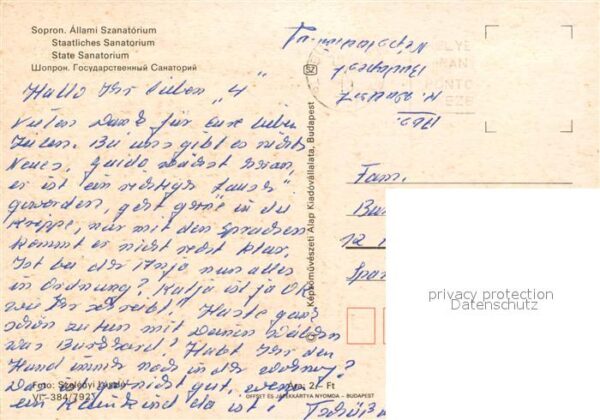 Sopron. Állami Szanatórium
Staatliches Sanatorium
State Sanatorium
Шопрон. Государственный Санаторий
Hallo Ihr lieben „4"
Vielen Dank für Eure lieben
Zeilen. Bei uns gibt es nichts
Neues, Guido wächst heran,
er ist ein richtiger „Lauser"
geworden, geht gerne in die
Krippe, nur mit den Sprachen
kommt er nicht recht klar.
Ist bei der Anja nun alles
in Ordnung? Katja ist ja OK
wie Ihr schreibt! Hast ganz
schön zu tun mit Deinen
was Burkhard? Habt Ihr den
Hund immer noch in der Wohnung?
Das ist nicht gut, wenn
ein Kleinkind da ist! Tschüß
Foto: Szelényi Károly
VI-384/792
Ára: 2,- Ft
OFFSET ÉS JÁTÉKKÁRTYA NYOMDA - BUDAPEST
© Képzőművészeti Alap Kiadóvállalata, Budapest
Abs.
Budapest
Népstadion
Fam.
Bu
12
Spa
privacy protection
Datenschutz